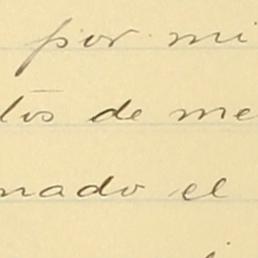 por mi
tos de me
nado el